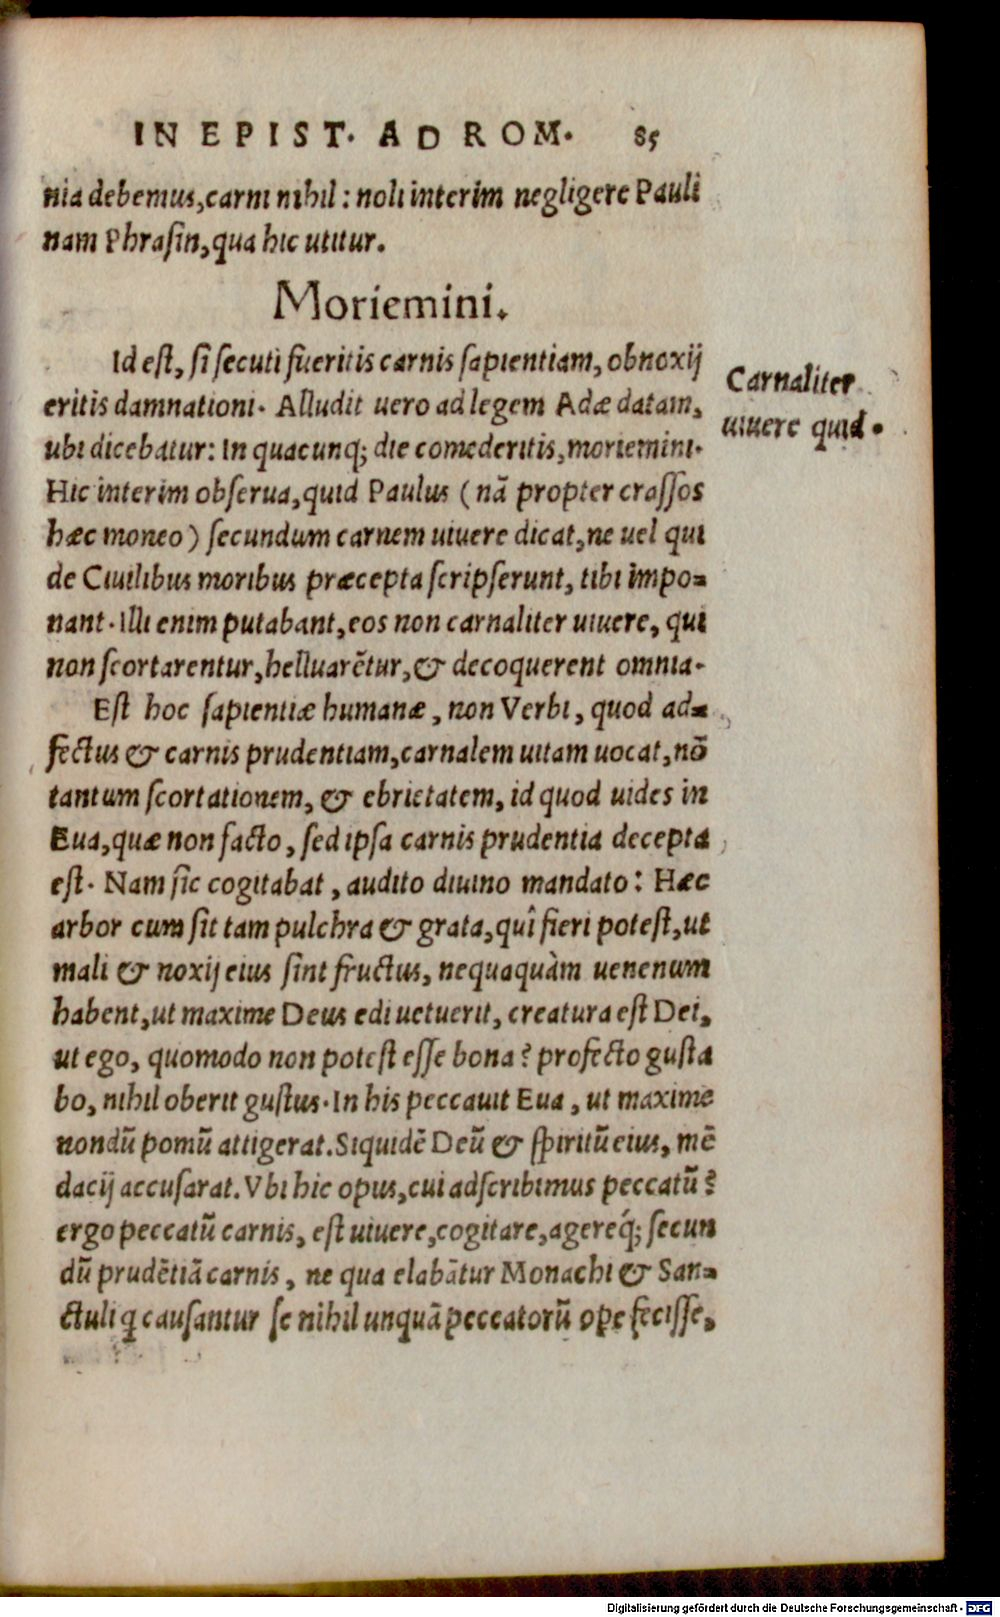 IN EPIST. AD ROM. 85
nia debemus, carni nihil: noli interim negligere Pauli
nam Phrasin, qua hic utitur.
Moriemini.
Id est, si secuti fueritis carnis sapientiam, obnoxij
eritis damnationi. Alludit uero ad legem Adæ datam,
ubi dicebatur: In quacunq; die comederitis, moriemini.
Hic interim obserua, quid Paulus (nā propter crassos
hæc moneo) secundum carnem uiuere dicat, ne uel qui
de Ciuilibus moribus præcepta scripserunt, tibi impo-
nant. Illi enim putabant, eos non carnaliter uiuere, qui
non scortarentur, helluarētur, & decoquerent omnia.
Est hoc sapientiæ humanæ, non Verbi, quod ad-
fectus & carnis prudentiam, carnalem uitam uocat, nō
tantum scortationem, & ebrietatem, id quod uides in
Eua, quæ non facto, sed ipsa carnis prudentia decepta
est. Nam sic cogitabat, audito diuino mandato: Hæc
arbor cum sit tam pulchra & grata, quî fieri potest, ut
mali & noxij eius sint fructus, nequaquàm uenenum
habent, ut maxime Deus edi uetuerit, creatura est Dei,
ut ego, quomodo non potest esse bona? profecto gusta
bo, nihil oberit gustus. In his peccauit Eua, ut maxime
nondū pomū attigerat. Siquidē Deū & spiritū eius, mē
dacij accusarat. Vbi hic opus, cui adscribimus peccatū?
ergo peccatū carnis, est uiuere, cogitare, agereq́; secun
dū prudētiā carnis, ne qua elabātur Monachi & San-
ctuli q causantur se nihil unquā peccatorū ope fecisse,
Carnaliter
uiuere quid.
Digitalisierung gefördert durch die Deutsche Forschungsgemeinschaft - DFG